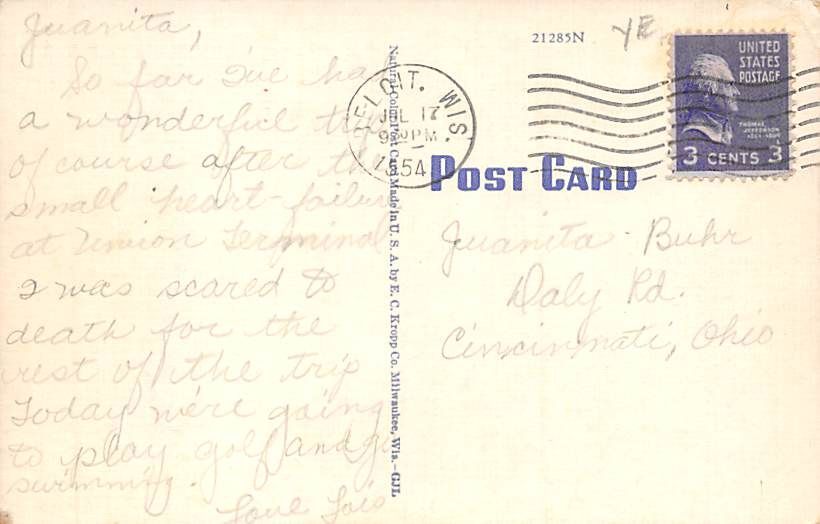 Juanita,
So far I've had
a wonderful trip
of course after the
small heart-failure
at Union Terminal
I was scared to
death for the
rest of the trip
Today we're going
to play golf and go
swimming.
Love Lois
Natural Color Post Card Made in U. S. A. by E. C. Kropp Co. Milwaukee, Wis.-GJL
21285N
YE
BELOIT. WIS.
JUL 17
PM
1954
UNITED
STATES
POSTAGE
THOMAS
JEFFERSON
3 CENTS 3
POST CARD
Juanita Buhr
Daly Rd.
Cincinnati, Ohio